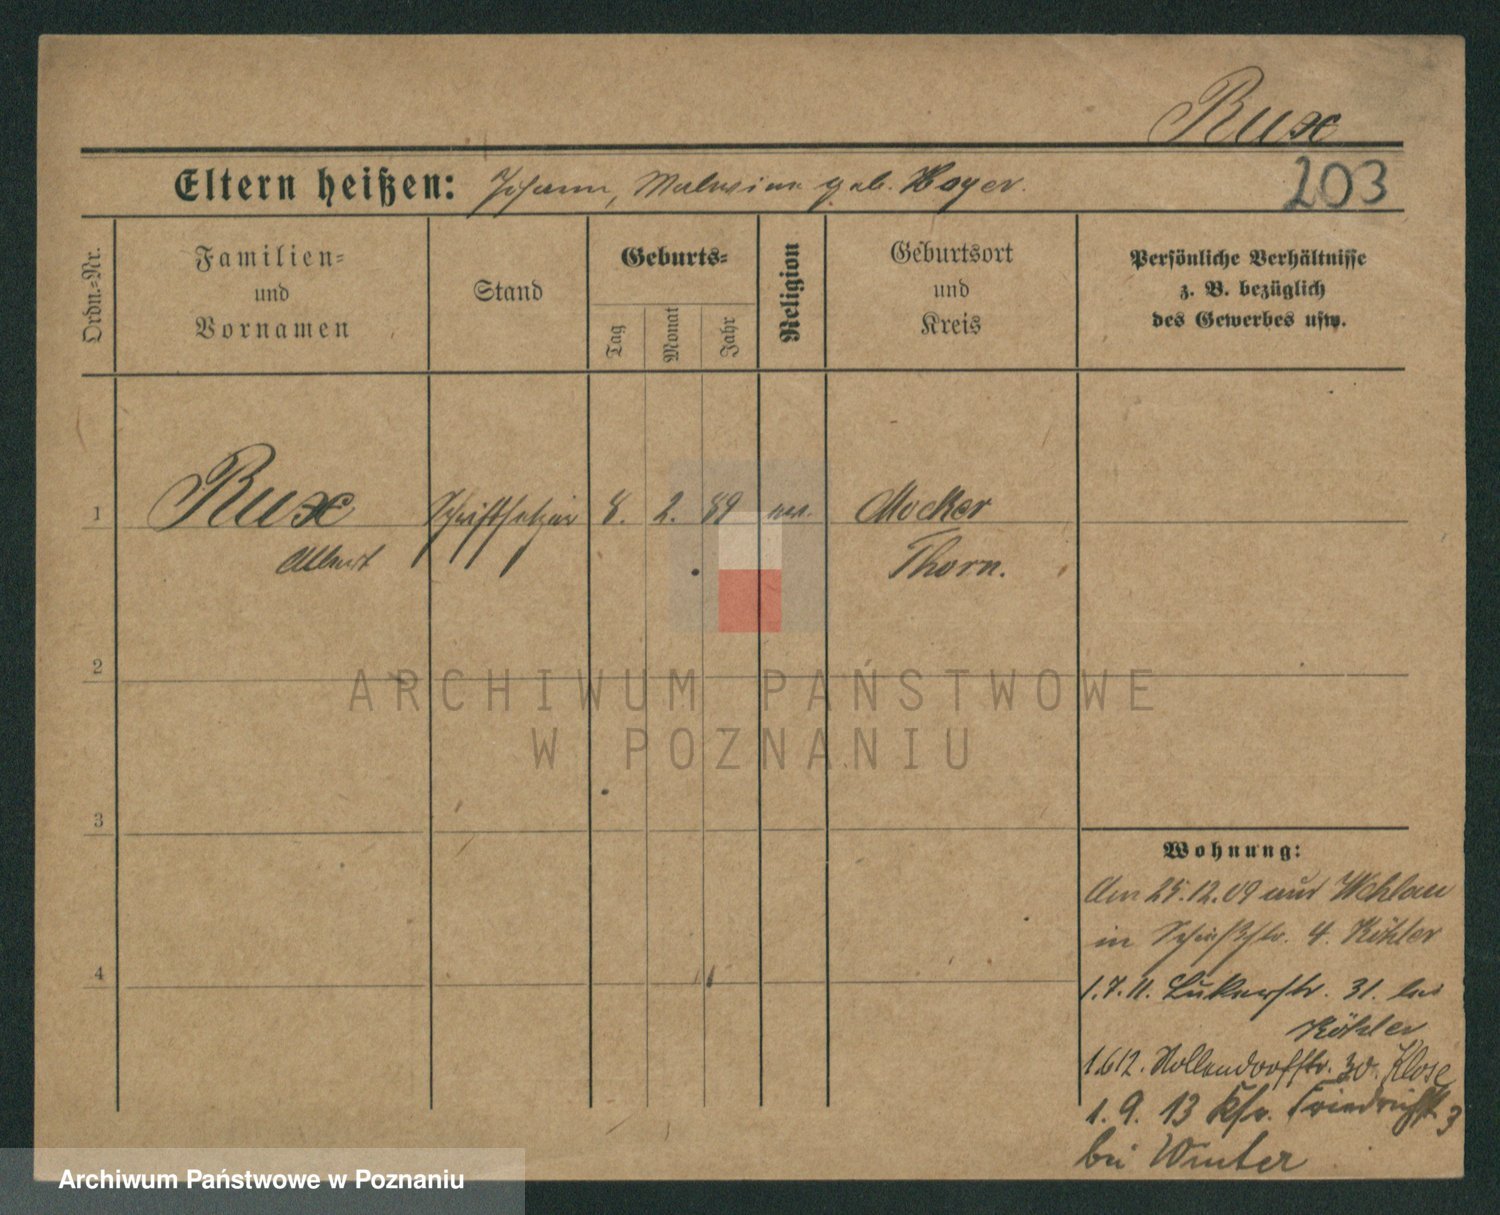 Rux
Eltern heißen: Johann, Malwine geb. Hoyer.
203
Ordn.-Nr.
Familien-
und
Vornamen
Stand
Geburts-
Tag
Monat
Jahr
Religion
Geburtsort
und
Kreis
Persönliche Verhältnisse
z. B. bezüglich
des Gewerbes usw.
1 Rux Schriftsetzer 8. 2. 89 Mocker
Albert Thorn.
2
ARCHIWUM PAŃSTWOWE
W POZNANIU
3
4
Wohnung:
Am 25.12.09 aus Wohlau
in 4. Köhler
1.7.11. 31. bei
Köhler
1.6.12. Nollendorfstr. 30. Klose
1. 9. 13 Ksr. Friedrichstr. 3
bei Winter
Archiwum Państwowe w Poznaniu